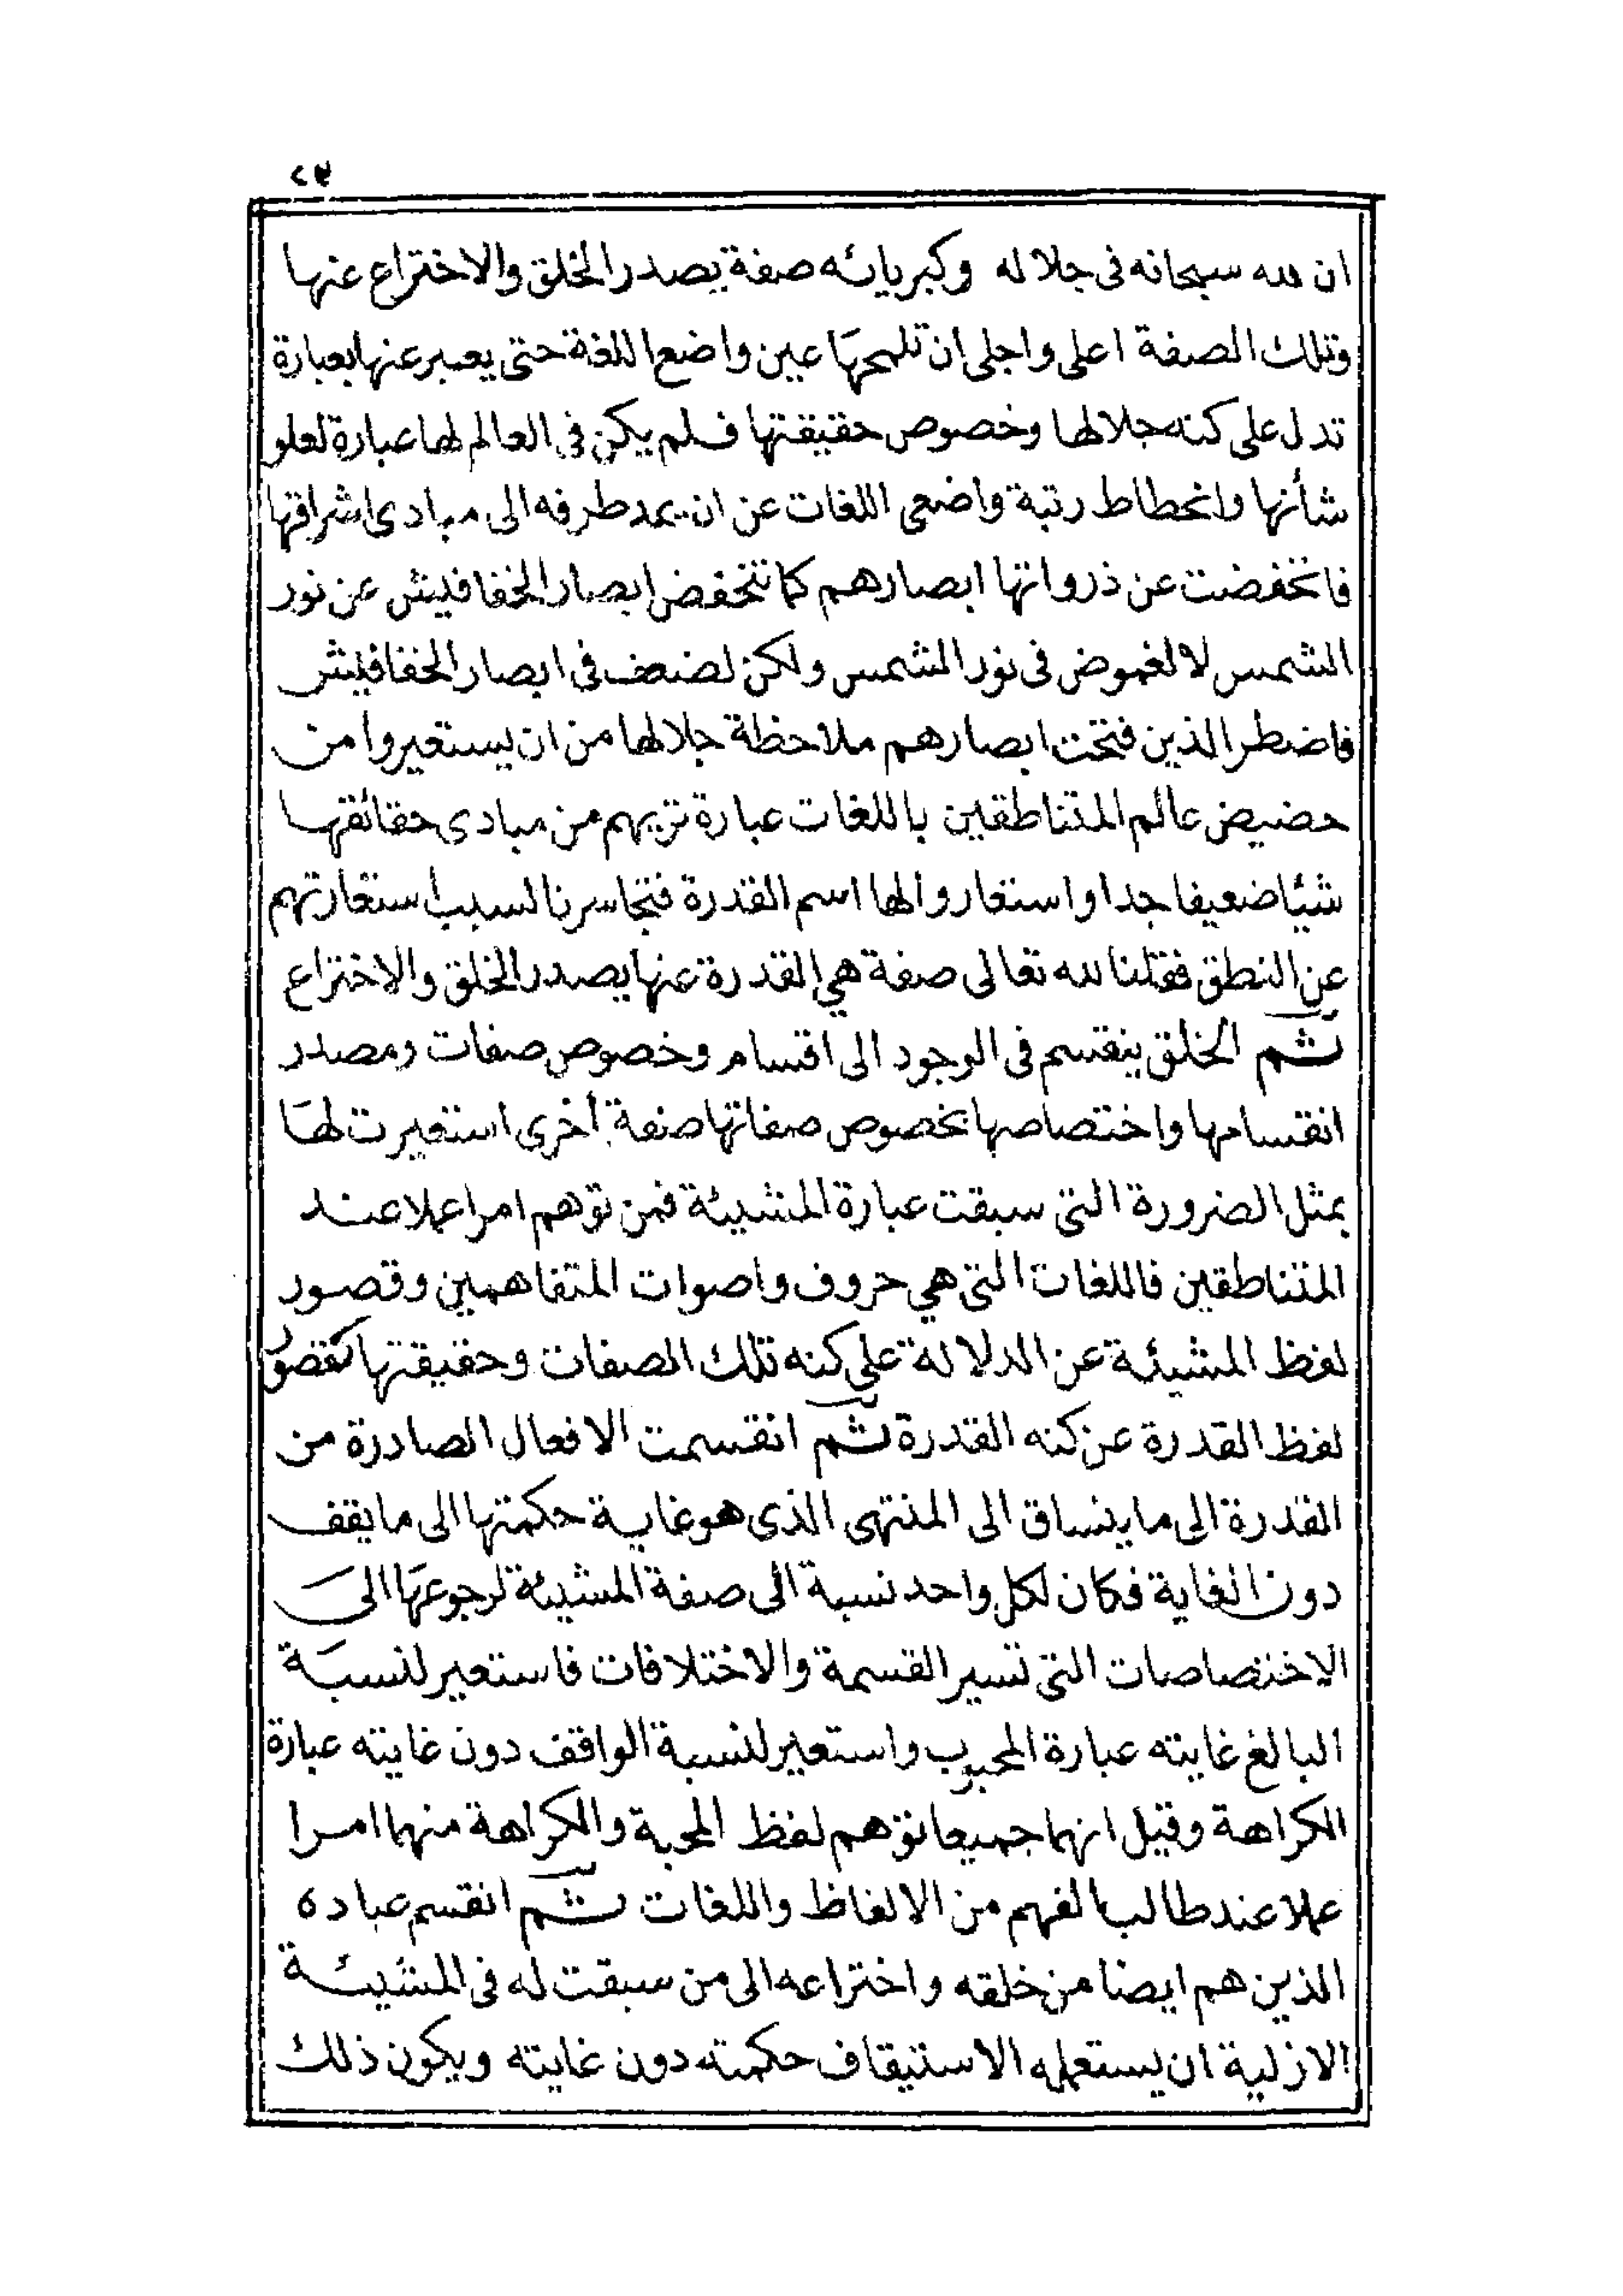 ٢٤
ان لله سبحانه فى جلاله وكبريائه صفة يصدر الخلق والاختراع عنها
وتلك الصفة اعلى واجلى ان تلمحها عين واضع اللغة حتى يعبر عنها بعبارة
تدل على كنه جلالها وخصوص حقيقتها فلم يكن فى العالم لها عبارة لعلو
شأنها وانحطاط رتبة واضعى اللغات عن ان يمد طرفه الى مبادى اشراقها
فانخفضت عن ذرواتها ابصارهم كما تنخفض ابصار الخفافيش عن نور
الشمس لا لغموض فى نور الشمس ولكن لضعف فى ابصار الخفافيش
فاضطر الذين فتحت ابصارهم ملاحظة جلالها من ان يستعيروا من
حضيض عالم المتناطقين باللغات عبارة تريهم من مبادى حقائقها
شيئا ضعيفا جدا واستعاروا لها اسم القدرة فتجاسرنا لسبب استعارتهم
عن النطق فقلنا لله تعالى صفة هي القدرة عنها يصدر الخلق والاختراع
ثم الخلق ينقسم فى الوجود الى اقسام وخصوص صفات ومصدر
انقسامها واختصاصها بخصوص صفاتها صفة أخرى استعيرت لها
بمثل الضرورة التى سبقت عبارة المشيئة فمن توهم امرا عملا عند
المتناطقين فاللغات التى هي حروف واصوات المتفاهمين وقصور
لفظ المشيئة عن الدلالة على كنه تلك الصفات وحقيقتها كقصور
لفظ القدرة عن كنه القدرة ثم انقسمت الافعال الصادرة من
القدرة الى ما ينساق الى المنتهى الذى هو غاية حكمتها الى ما يقف
دون الغاية فكان لكل واحد نسبة الى صفة المشيئة لرجوعها الى
الاختصاصات التى تسير القسمة والاختلافات فاستعير لنسبة
البالغ غايته عبارة المحبوب واستعير لنسبة الواقف دون غايته عبارة
الكراهة وقيل انهما جميعا نوهم لفظ المحبة والكراهة منهما امرا
عملا عند طالب الفهم من الالفاظ واللغات ثم انقسم عباده
الذين هم ايضا من خلقه واختراعه الى من سبقت له فى المشيئة
الازلية ان يستعمله الاستيقاف حكمته دون غايته ويكون ذلك